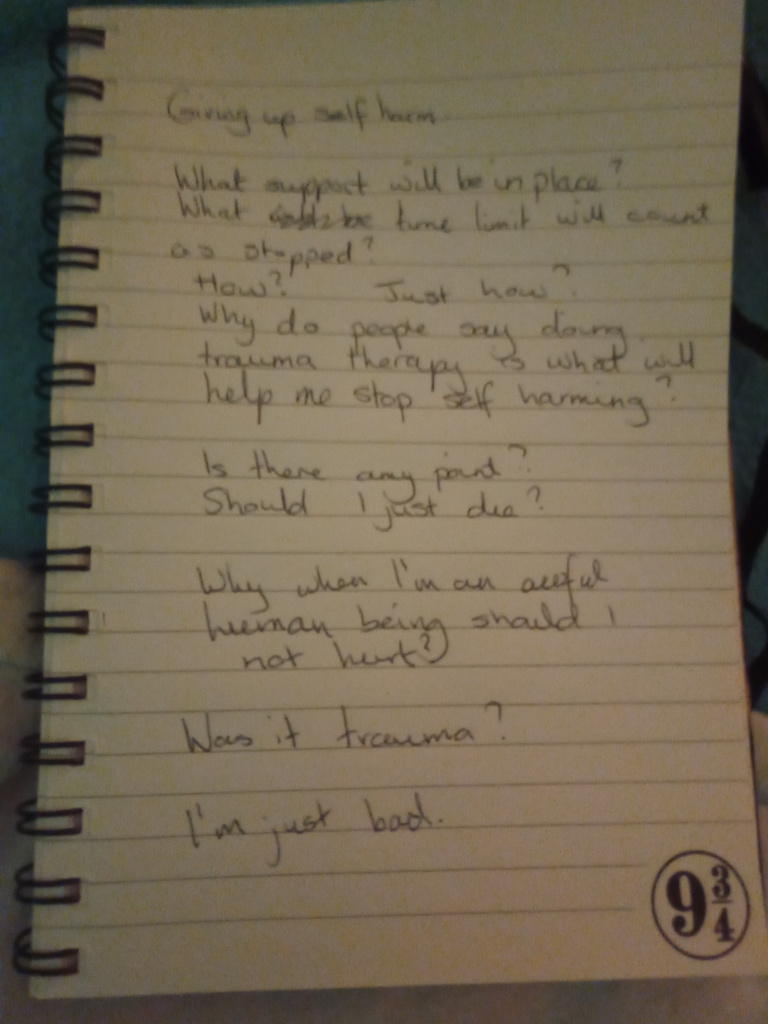 Giving up self harm.
What support will be in place?
What time limit will count
as stopped?
How? Just how?
Why do people say doing
trauma therapy is what will
help me stop self harming?
Is there any point?
Should I just die?
Why when I'm an awful
human being should I
not hurt?
Was it trauma?
I'm just bad.
9 3/4